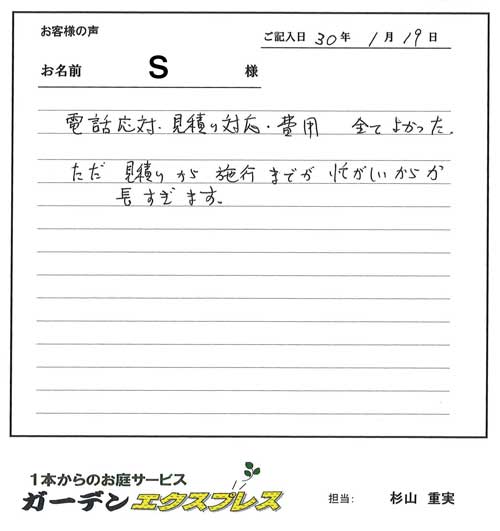 お客様の声
ご記入日 30年 1月 19日
お名前 S 様
電話応対・見積り対応・費用 全てよかった。
ただ 見積りから 施行までが 忙がしいからか
長すぎます。
1本からのお庭サービス
ガーデンエクスプレス
担当: 杉山 重実